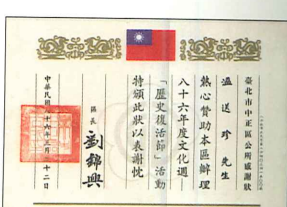 臺北市中正區公所感謝狀
溫送珍 先生
熱心贊助本區辦理
八十六年度文化週
「歷史復活節」活動
特頒此狀以表謝忱
區長 劉錦興
中華民國八十六年三月二十二日